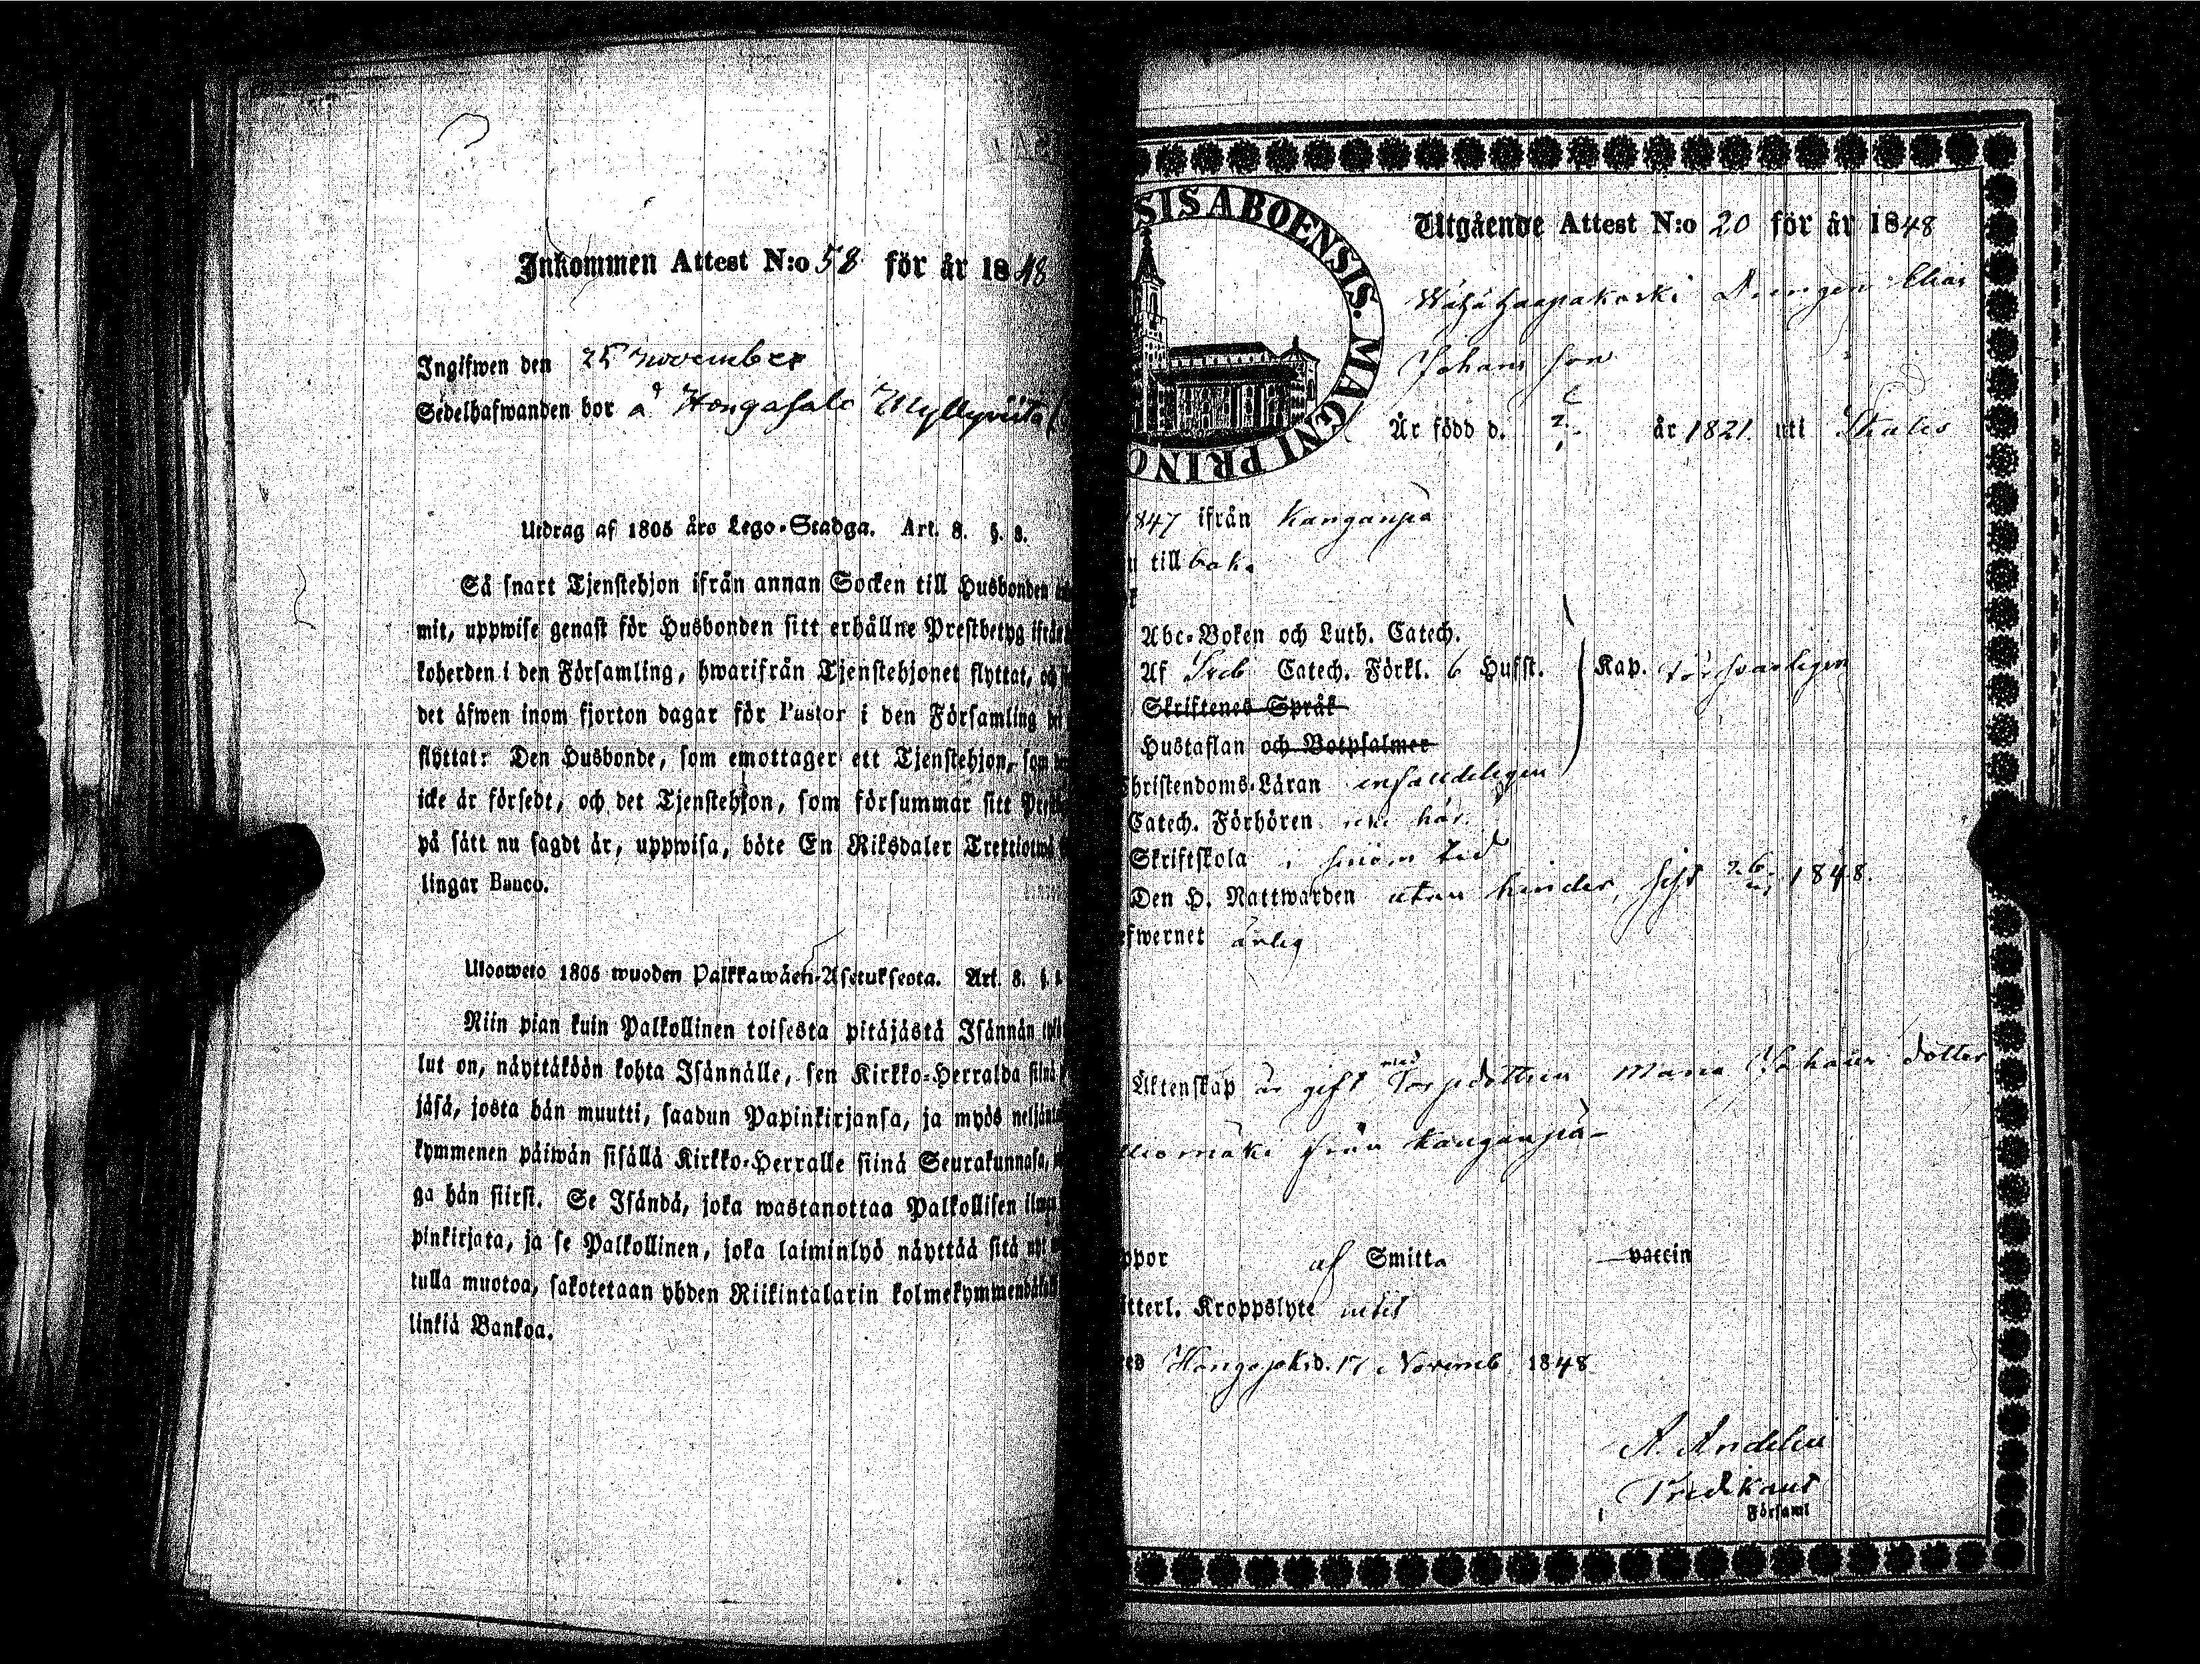 Inkommen Attest N:o 58 för år 1848
Ingifwen den 25 november
Sedelhafwanden bor å Hongasalo Myllyviita
Utdrag af 1805 års Lego-Stadga. Art. 8. §. 8.
Så snart Tjenstehjon ifrån annan Socken till Husbonden
mit, uppwise genast för Husbonden sitt erhållne Prestbetyg ifrån
koherden i den Församling, hwarifrån Tjenstehjonet flyttat, och
det äfwen inom fjorton dagar för Pastor i den Församling
flyttat: Den Husbonde, som emottager ett Tjenstehjon, som
icke är försedt, och det Tjenstehjon, som försummar sitt
på sätt nu sagdt är, uppwisa, böte En Riksdaler Trettiotwå
lingar Banco.
Ulosweto 1805 wuoden Palkkawäen-Asetuksesta. Art. 8. §.
Niin pian kuin Palkollinen toisesta pitäjästä Isännän
lut on, näyttäköön kohta Isännälle, sen Kirkko-Herralda siinä
jäsä, josta hän muutti, saadun Papinkirjansa, ja myös
kymmenen päiwän sisällä Kirkko-Herralle siinä Seurakunnasa,
ga hän siirsi. Se Isändä, joka wastanottaa Palkollisen
pinkirjata, ja se Palkollinen, joka laiminlyö näyttää sitä
tulla muotoa, sakotetaan yhden Riikintalarin
linkiä Bankoa.
SIS ABOENSIS. MAGNI PRINC
Utgående Attest N:o 20 för år 1848
Wähähaapakoski Drengen Elias
Johans son
Är född d. ? år 1821. uti Ikalis
1847 ifrån Kanganpä
n till bak.
Abc-Boken och Luth. Catech.
Af Sveb Catech. Förkl. 6 Hufst. Kap. försvarligen
Skriftenes Språk
Hustaflan och Botpsalmer
Christendoms-Läran enfalldeligen
Catech. Förhören icke här.
Skriftskola i sinom tid
Den H. Nattwarden utan hinder, sist 1848.
efwernet ärlig
Äktenskap är gift med Torpdottren Maria Johans dotter
från Kanganpä
ppor af Smitta vaccin
itterl. Kroppslyte intet
d. 17 Novemb. 1848
A. Andelin
Predikant
i Församl